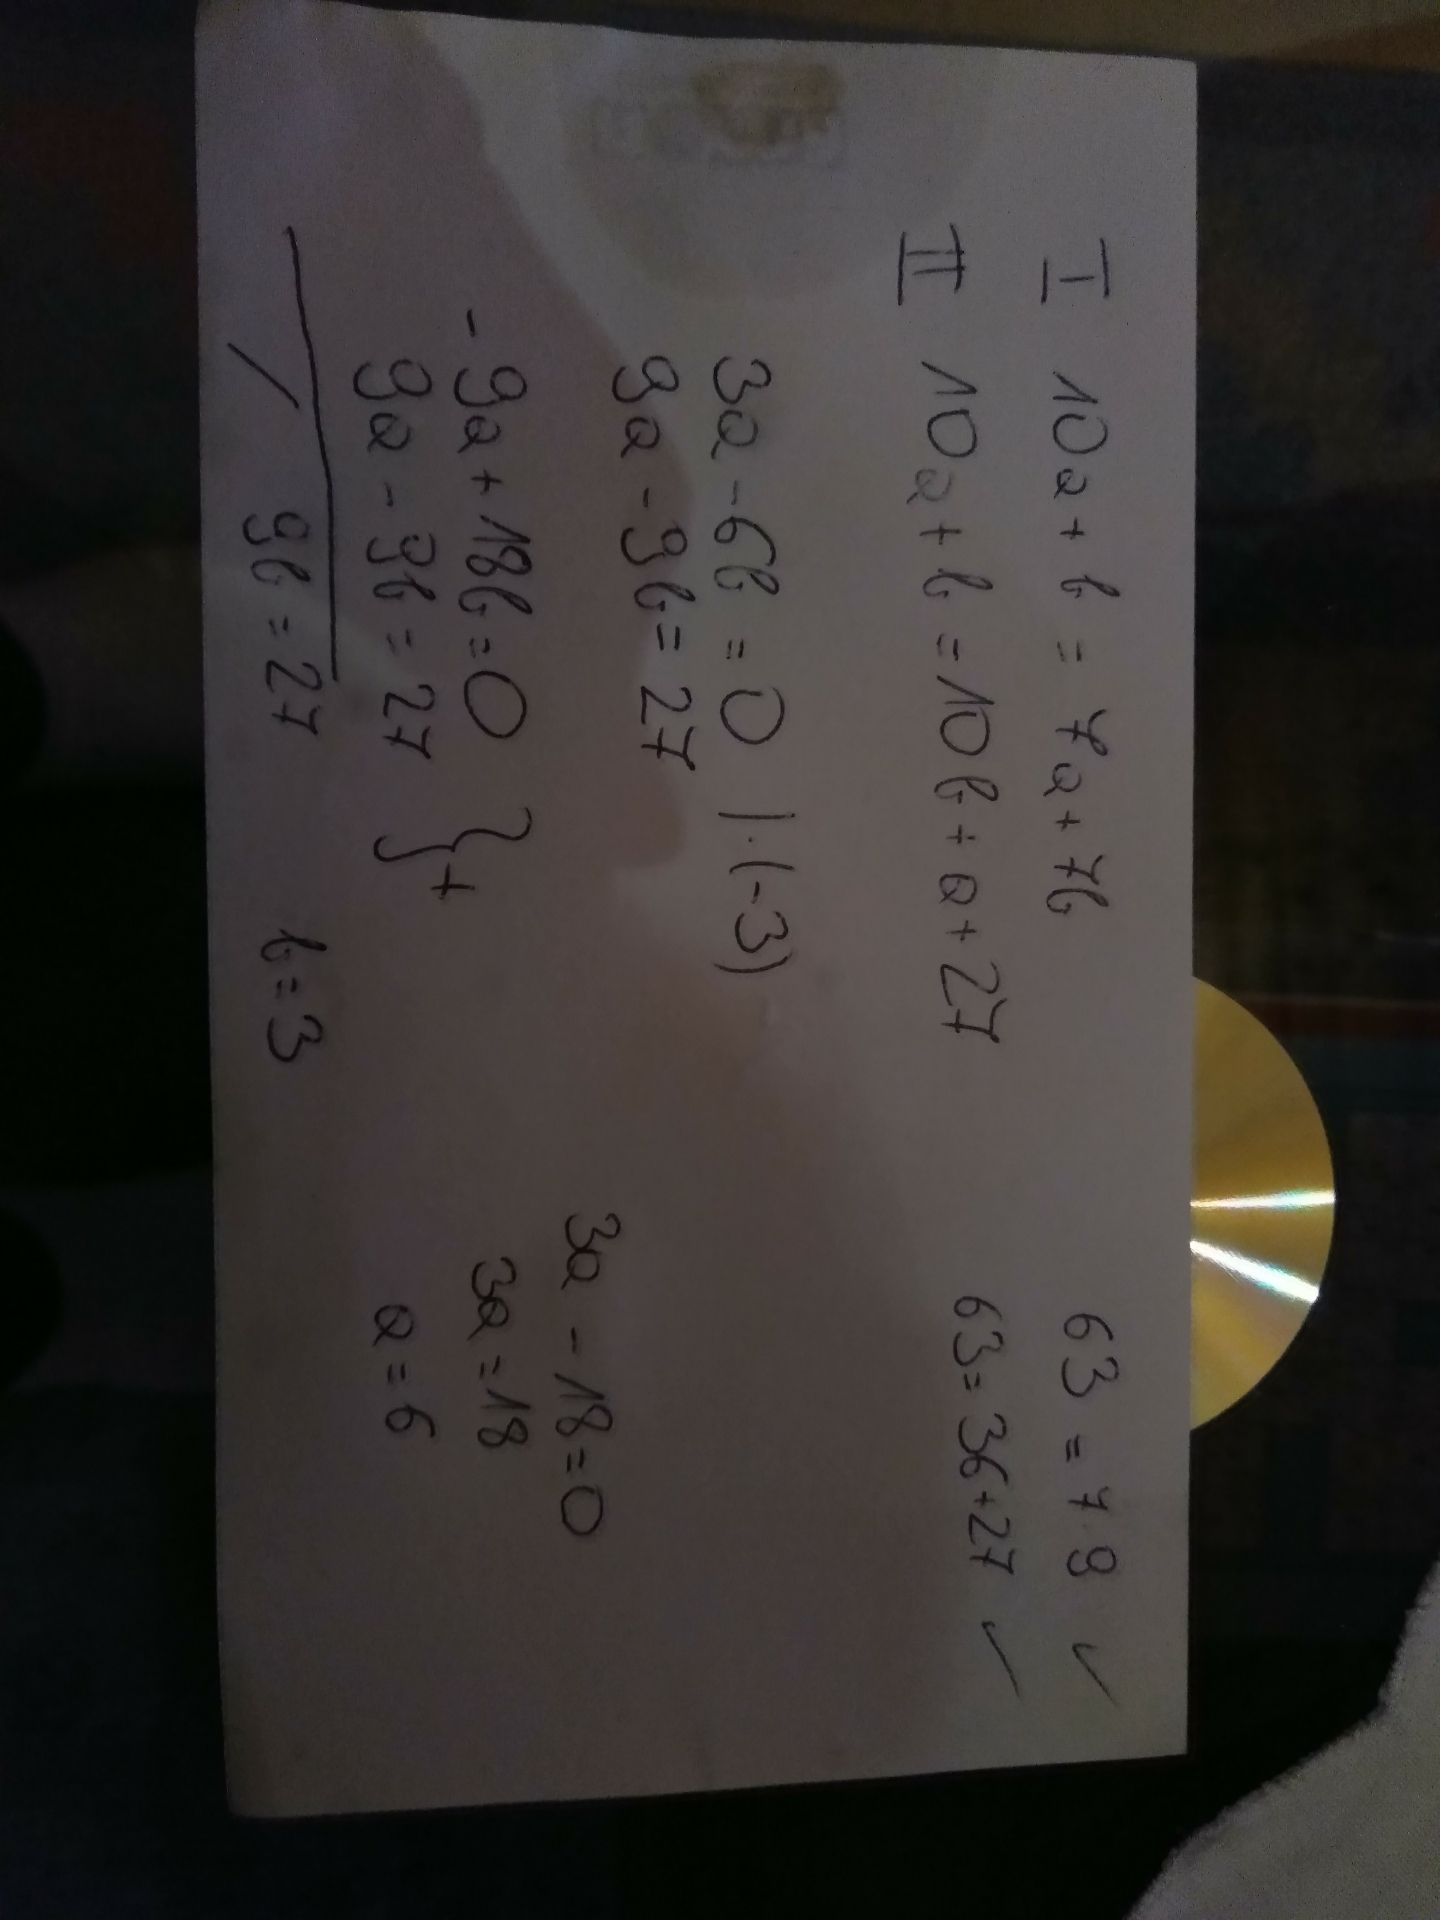 I 10a + b = 7a + 7b
II 10a + b = 10b + a + 27
63 = 7·9 ✓
63 = 36 + 27 ✓
3a - 6b = 0 | · (-3)
9a - 9b = 27
-9a + 18b = 0
9a - 9b = 27 } +
/ 9b = 27
b = 3
3a - 18 = 0
3a = 18
a = 6